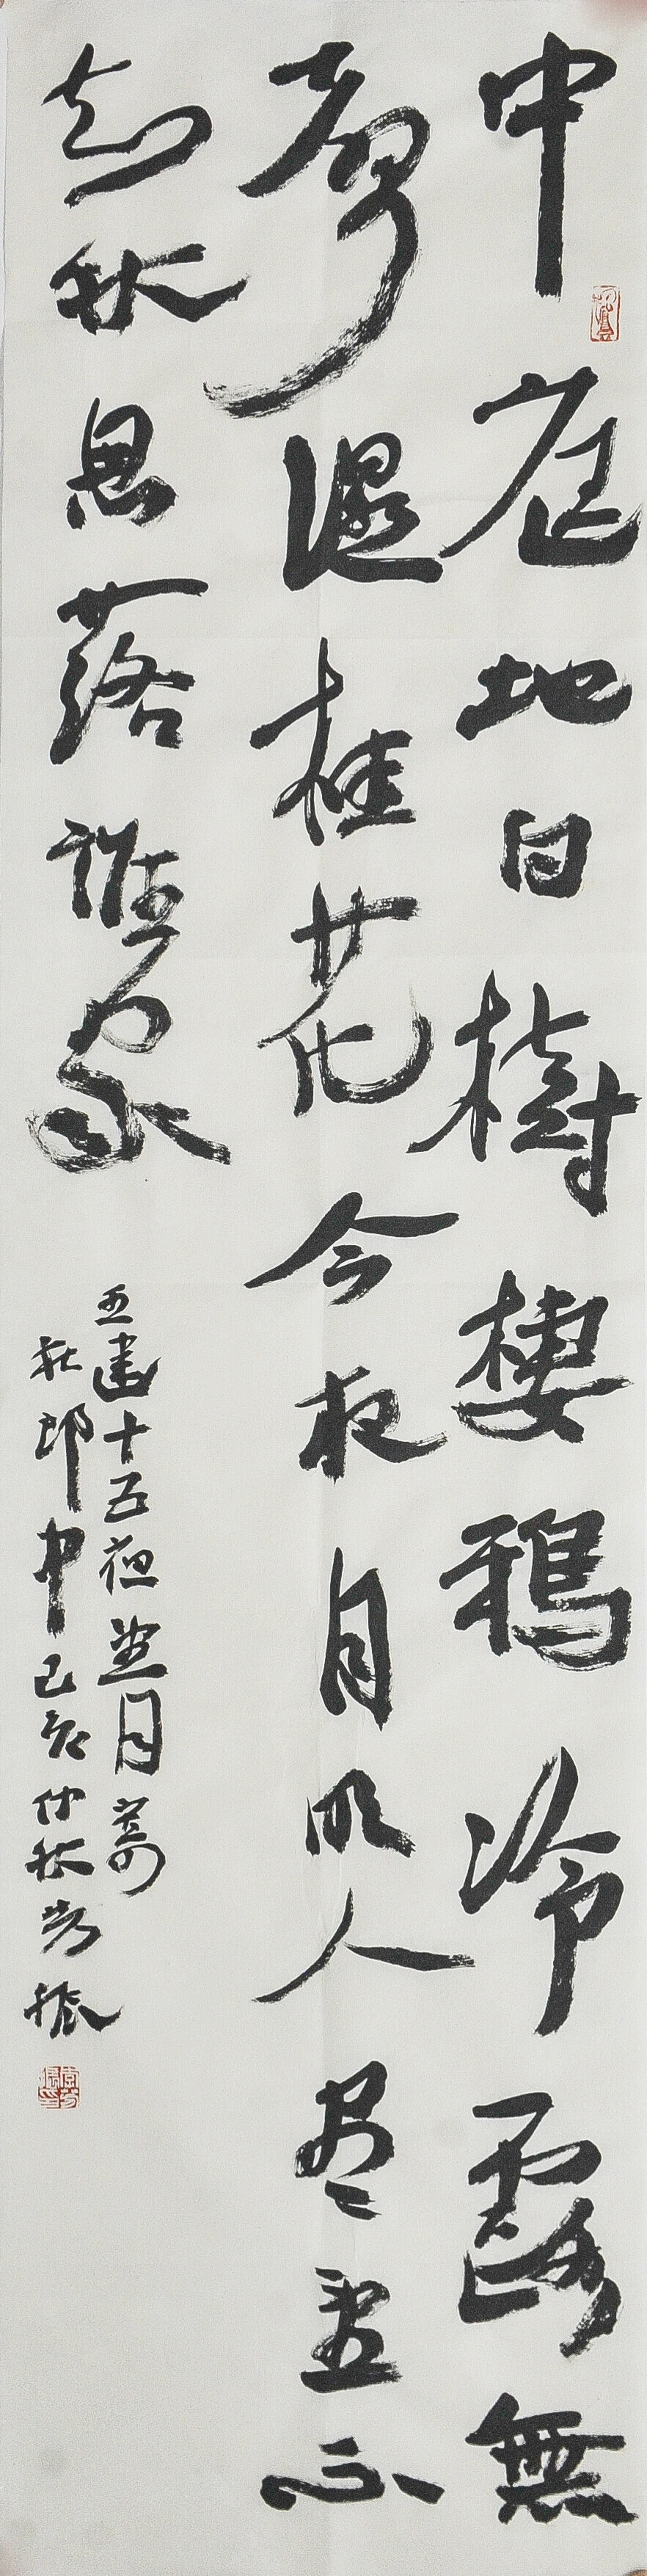 中庭地白樹棲鴉冷露無
聲濕桂花今夜月明人尽望不
知秋思落誰家
王建十五夜望月寄
杜郎中己亥仲秋